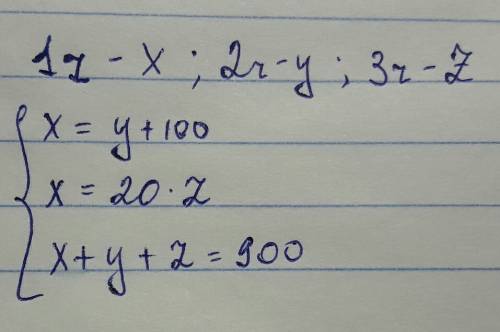 1ч - x ; 2ч - y ; 3ч - Z
x = y + 100
x = 20 · Z
x + y + z = 900